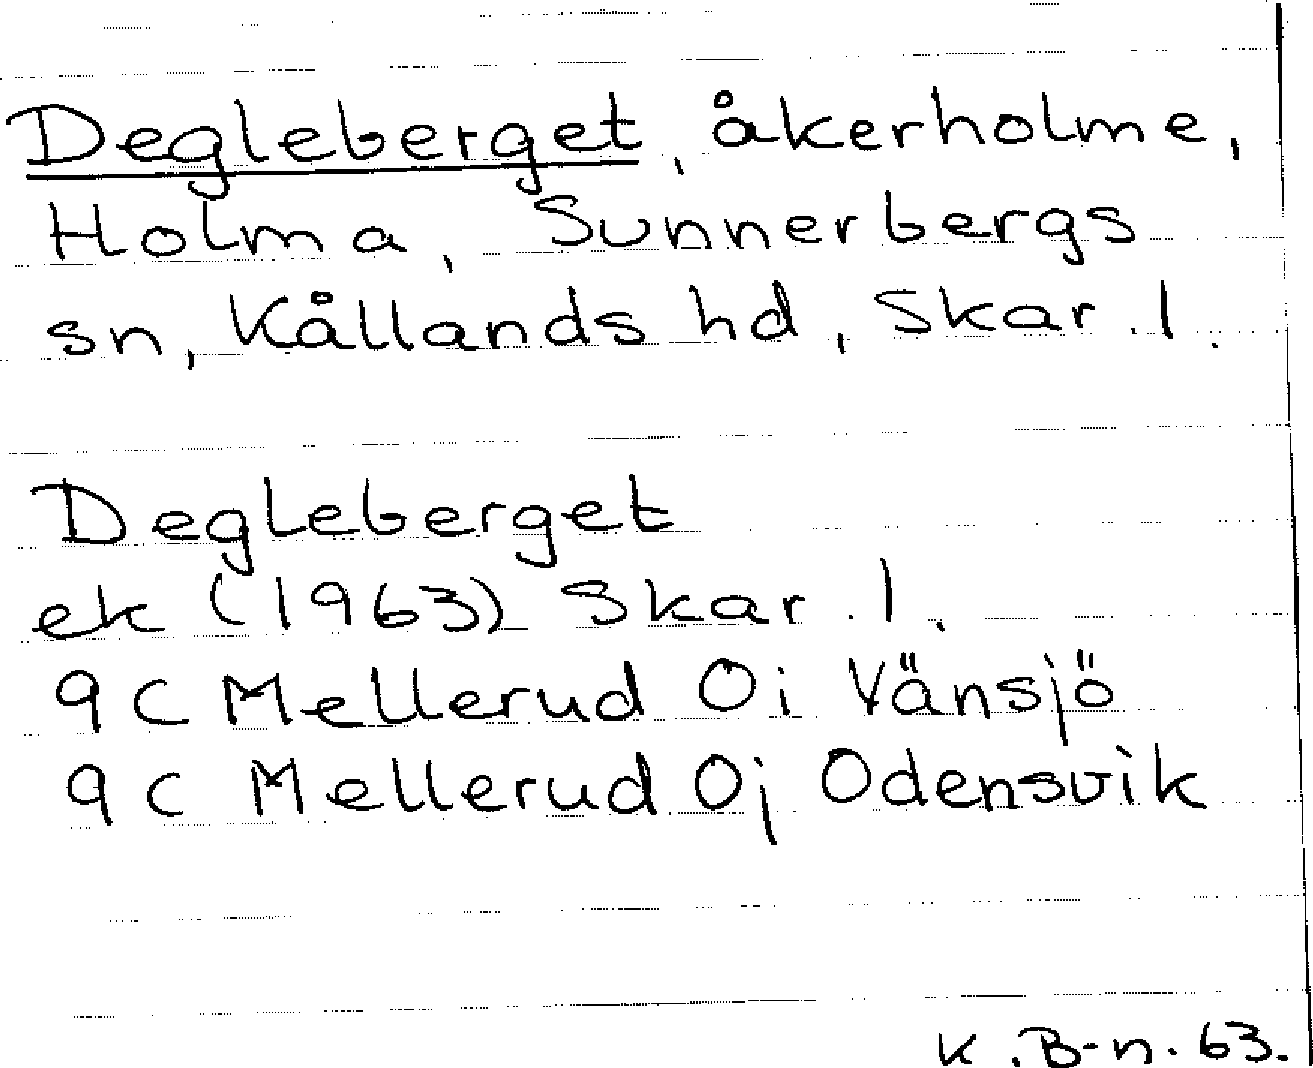 Degleberget, åkerholme,
Holma, Sunnerbergs
sn, Kållands hd, Skar. l.
Degleberget
ek (1963) Skar. l.
9C Mellerud 0i Vänsjö
9C Mellerud 0j Odensvik
K. B-n. 63.